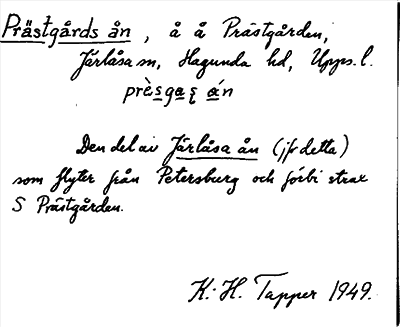 Prästgårds ån, å å Prästgården,
Järlåsa sn, Hagunda hd, Upps. l.
prèsgaʂ án
Den del av Järlåsa ån (jfr detta)
som flyter från Petersburg och förbi strax
S Prästgården.
K.-H. Tapper 1949.